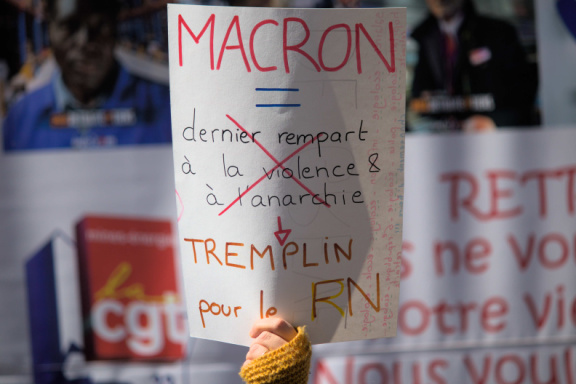 MACRON
=
dernier rempart
à la violence &
à l'anarchie
TREMPLIN
pour le RN
la
cgt
RETT
s ne vo
otre vi
Nous voul